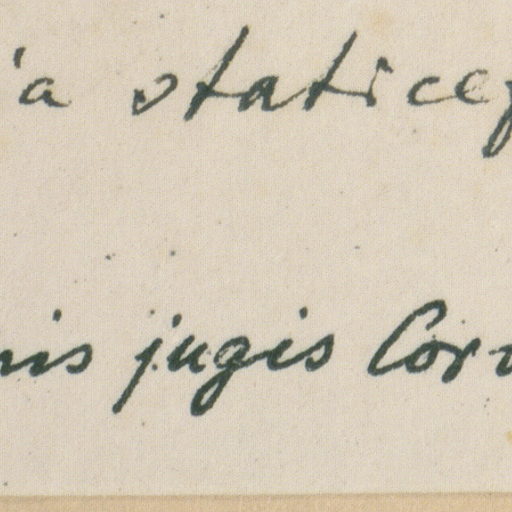 ia staticef
nis jugis Coro